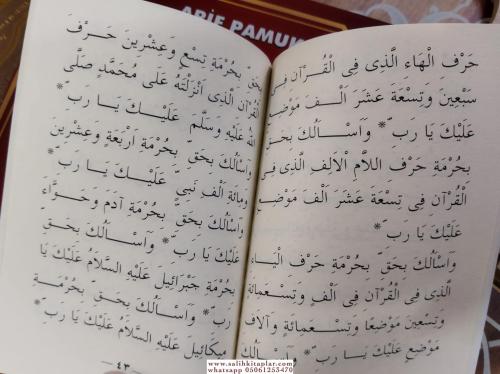 ARİF PAMUK
حَرْفِ الْهَاءِ الَّذِى فِى الْقُرْآنِ فِى
سَبْعِينَ وَتِسْعَةَ عَشَرَ اَلْفَ مَوْضِعٍ
عَلَيْكَ يَا رَبِّ * وَاَسْاَلُكَ بِحَقِّ
بِحُرْمَةِ حَرْفِ اللاَّمِ الْاَلِفِ الَّذِى فِى
الْقُرْآنِ فِى تِسْعَةَ عَشَرَ اَلْفَ مَوْضِعٍ
عَلَيْكَ يَا رَبِّ *
وَاَسْاَلُكَ بِحَقِّ بِحُرْمَةِ حَرْفِ الْيَاءِ
الَّذِى فِى الْقُرْآنِ فِى اَلْفٍ وَتِسْعِمِائَةٍ
وَتِسْعِينَ مَوْضِعًا وَتِسْعِمِائَةٍ وَآلاَفِ
مَوْضِعٍ عَلَيْكَ يَا رَبِّ * وَاَسْاَلُكَ
بِحَقِّ بِحُرْمَةِ تِسْعٍ وَعِشْرِينَ حَرْفَ
الْقُرْآنِ الَّذِى اَنْزَلْتَهُ عَلَى مُحَمَّدٍ صَلَّى
اللهُ عَلَيْهِ وَسَلَّمَ عَلَيْكَ يَا رَبِّ *
وَاَسْاَلُكَ بِحَقِّ بِحُرْمَةِ اَرْبَعَةٍ وَعِشْرِينَ
وَمِائَةِ اَلْفِ نَبِىٍّ عَلَيْكَ يَا رَبِّ *
وَاَسْاَلُكَ بِحَقِّ بِحُرْمَةِ آدَمَ وَحَوَّاءَ
عَلَيْكَ يَا رَبِّ * وَاَسْاَلُكَ بِحَقِّ
بِحُرْمَةِ جِبْرَائِيلَ عَلَيْهِ السَّلاَمُ عَلَيْكَ يَا
رَبِّ * وَاَسْاَلُكَ بِحَقِّ بِحُرْمَةِ
مِيكَائِيلَ عَلَيْهِ السَّلاَمُ عَلَيْكَ يَا رَبِّ *
— ٤٣ —
www.salihkitaplar.com
whatsapp 05061253470